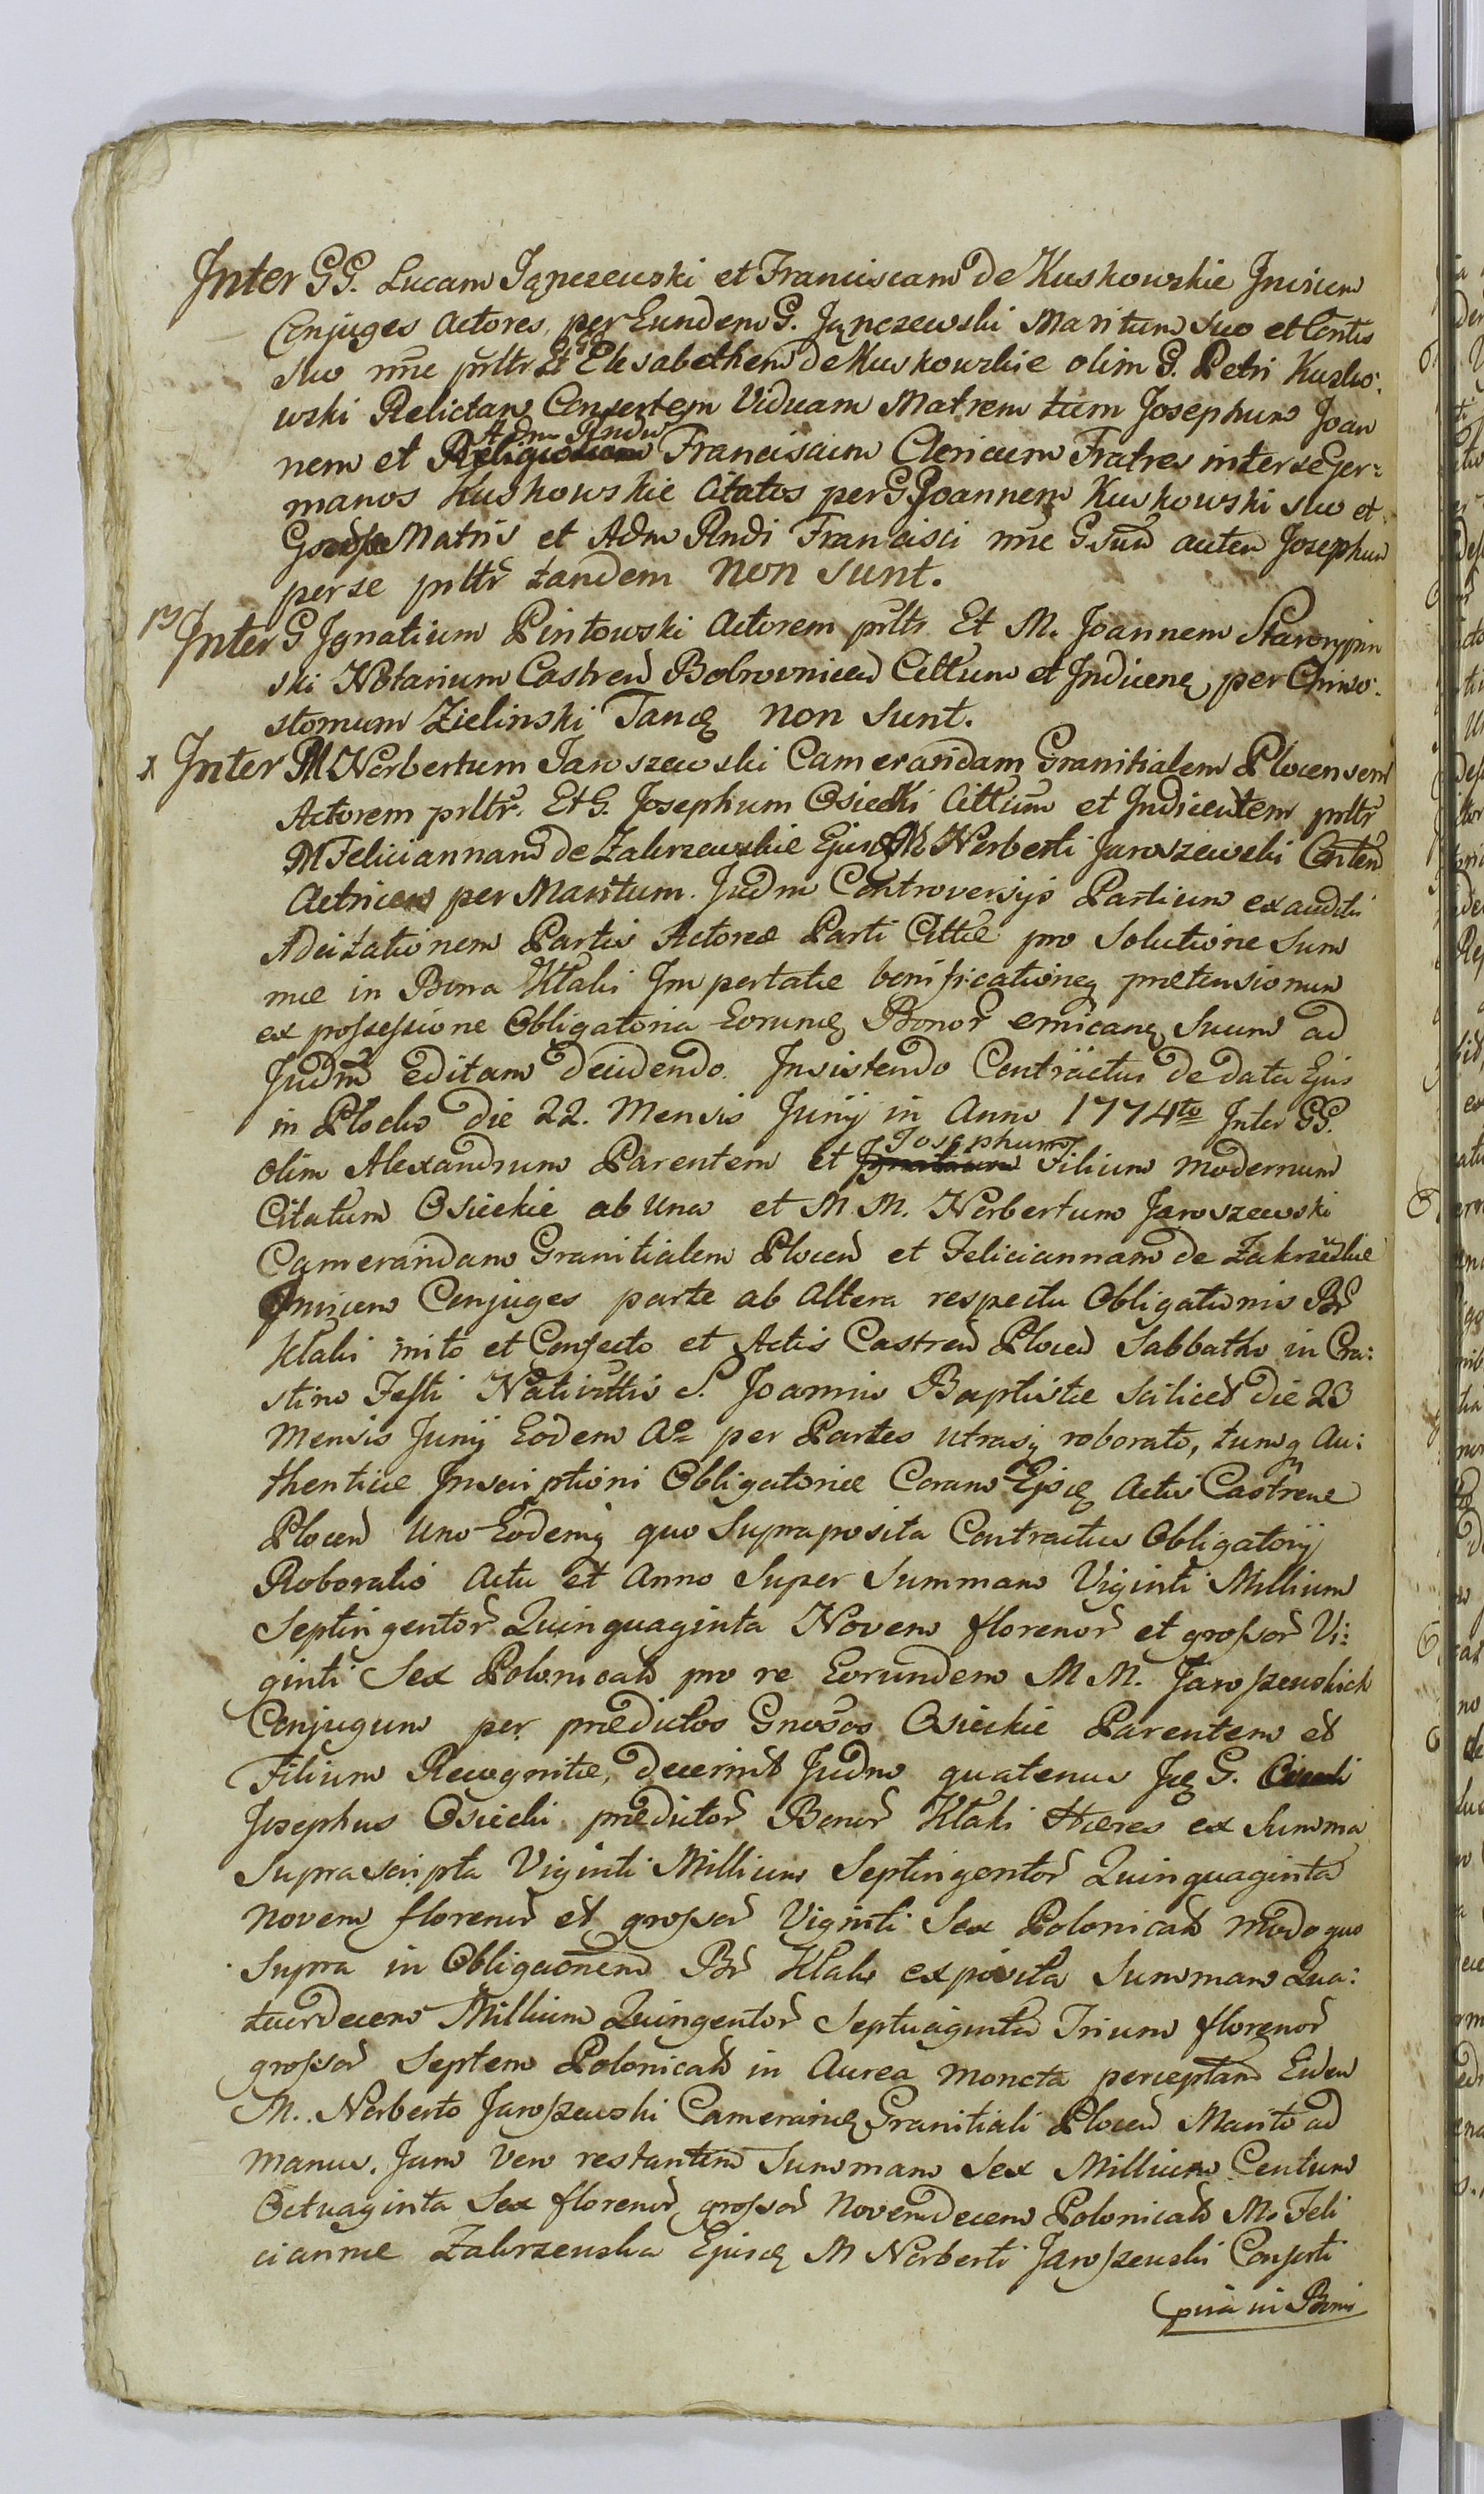 Inter GG. Lucam Jączewski et Franciscam de Kuskowskie Invicem
Conjuges Actores, per Eundem G. Jączewski Maritum suo et Contis
suo nne prltr Et GG Elisabetham de Kuskowskie olim G. Petri Kusko:
wski Relictam Consortem Viduam Matrem tum Josephum Joan
nem et Adm Rndum Franciscum Clericum Fratres inter se Ger:
manos Kuskowskie Citatos per G Joannem Kuskowski suo et
Matris et Adm Rndi Francisci nne autem Josephum
per se prltr tandem non sunt.
Inter G Ignatium Pintowski Actorem prltr Et M. Joannem Starorypin
ski Notarium Castren Bobrovnicen Cittum et Indicen, per Chriso:
stomum Zielinski Tanq non sunt.
x Inter M Norbertum Jaroszewski Camerarium Granitialem Plocensem
Actorem prltr. Et G. Josephum Osiecki Cittum et Indicentem prltr
M Feliciannam de Zakrzewskie Ejusq M Norberti Jaroszewski Conten
Actricem per Maritum. Judm Controversijs Partium exauditis
Adcitationem Partis Actoreæ Parti Cittæ pro Solutione Sum
mæ in Bona Kłaki Importatæ bonificationeq prætensionum
ex possessione Obligatoria Eorumq Bonor emicanq Suum ad
Judm editam decidendo. Insistendo Contractus de data Ejus
in Plocko die 22. Mensis Junij in Anno 1774to Inter GG.
olim Alexandrum Parentem et Josephum Filium modernum
Citatum Osieckie ab Una et M M. Norbertum Jaroszewski
Camerarium Granitialem Plocen et Feliciannam de Zakrzewskie
Invicem Conjuges parte ab altera respectu Obligationis Br
Kłaki inito et Confecto et Actis Castren Plocen Sabbatho in Cra:
stino Festi Nativittis S. Joannis Baptistæ Scilicet die 23
Mensis Junij Eodem Ao per Partes utrasq roborato, tumq Au:
thenticæ Inscriptioni Obligatoriæ Coram Ejsq Actis Castren
Plocen Uno Eodemq quo Supraposita Contractus Obligatorij
Roboratio Actu et Anno Super Summam Viginti Millium
Septingentor Quinquaginta Novem florenor et grossor Vi:
ginti Sex Polonicali pro re Eorundem M M. Jaroszewskich
Conjugum per prædictos Gnosos Osieckie Parentem et
Filium Recognitæ, decernit Judm quatenus G.
Josephus Osiecki prædictor Bonor Kłaki Hæres ex Summa
Suprascripta Viginti Millium Septingentor Quinquaginta
Novem florenor et grossor Viginti Sex Polonicali modo quo
Supra in Obligaonem Br Kłaki exposita Summam Qua:
tuordecem Millium Quingentor Septuaginta Trium florenor
grossor Septem Polonicali in Aurea Moneta perceptam Eidem
M. Norberto Jaroszewski Camerarioq Granitiali Plocen Marito ad
manus. Jam vero restantem Summam Sex Millium Centum
Octuaginta Sex florenor, grossor Novemdecem Polonicali M. Feli
cianne Zakrzewska Ejusq M Norberti Jaroszewski Consorti